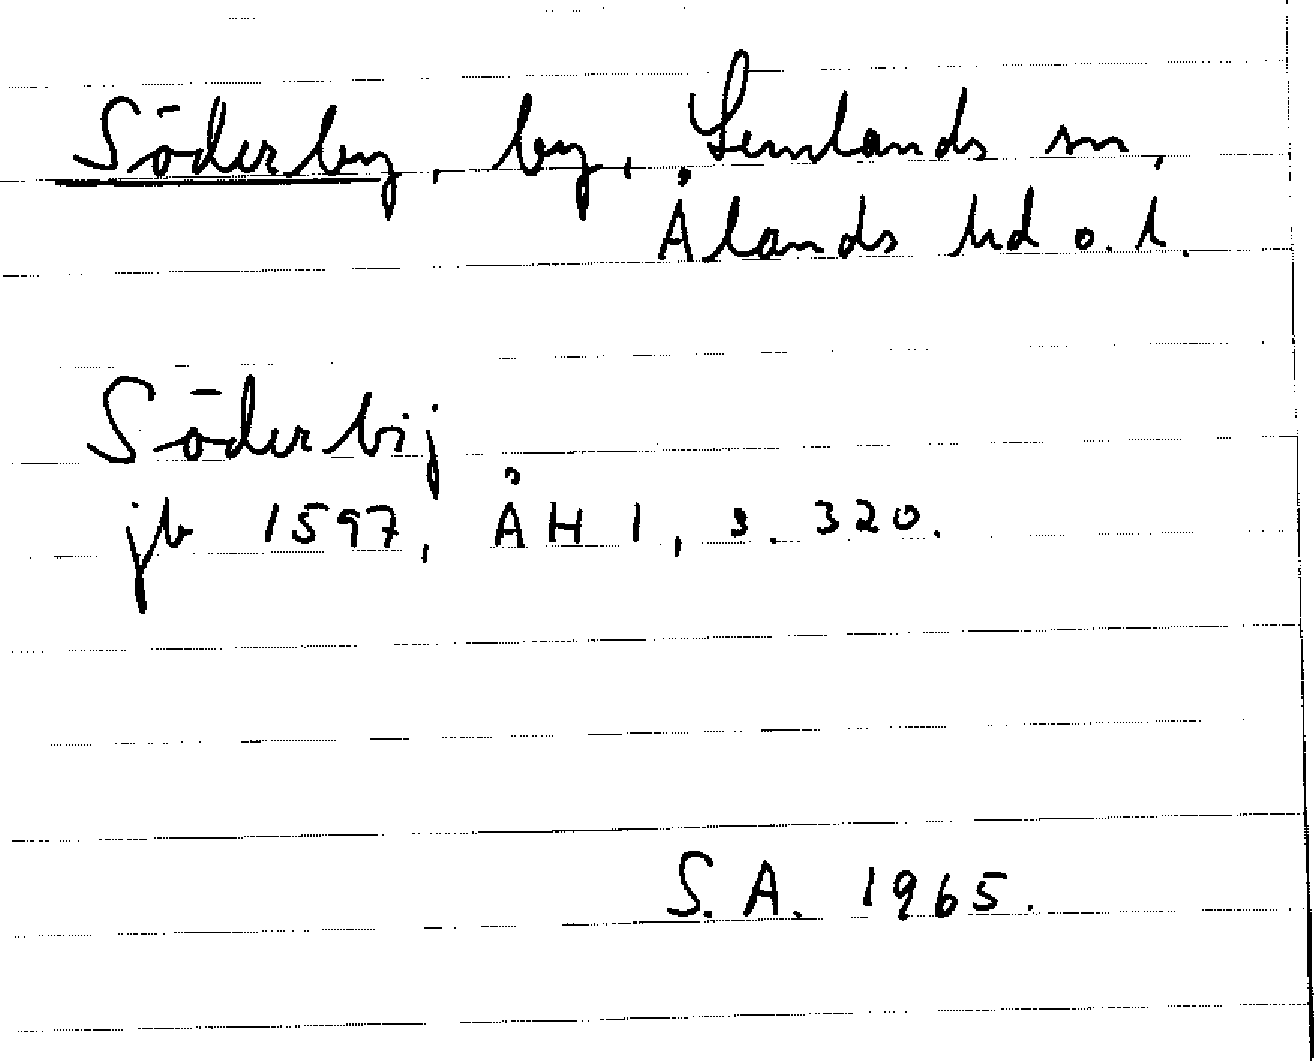 Söderby, by, Lemlands sn,
Ålands hd o. l.
Söderbij
jb 1597, ÅH 1, s. 320.
S. A. 1965.